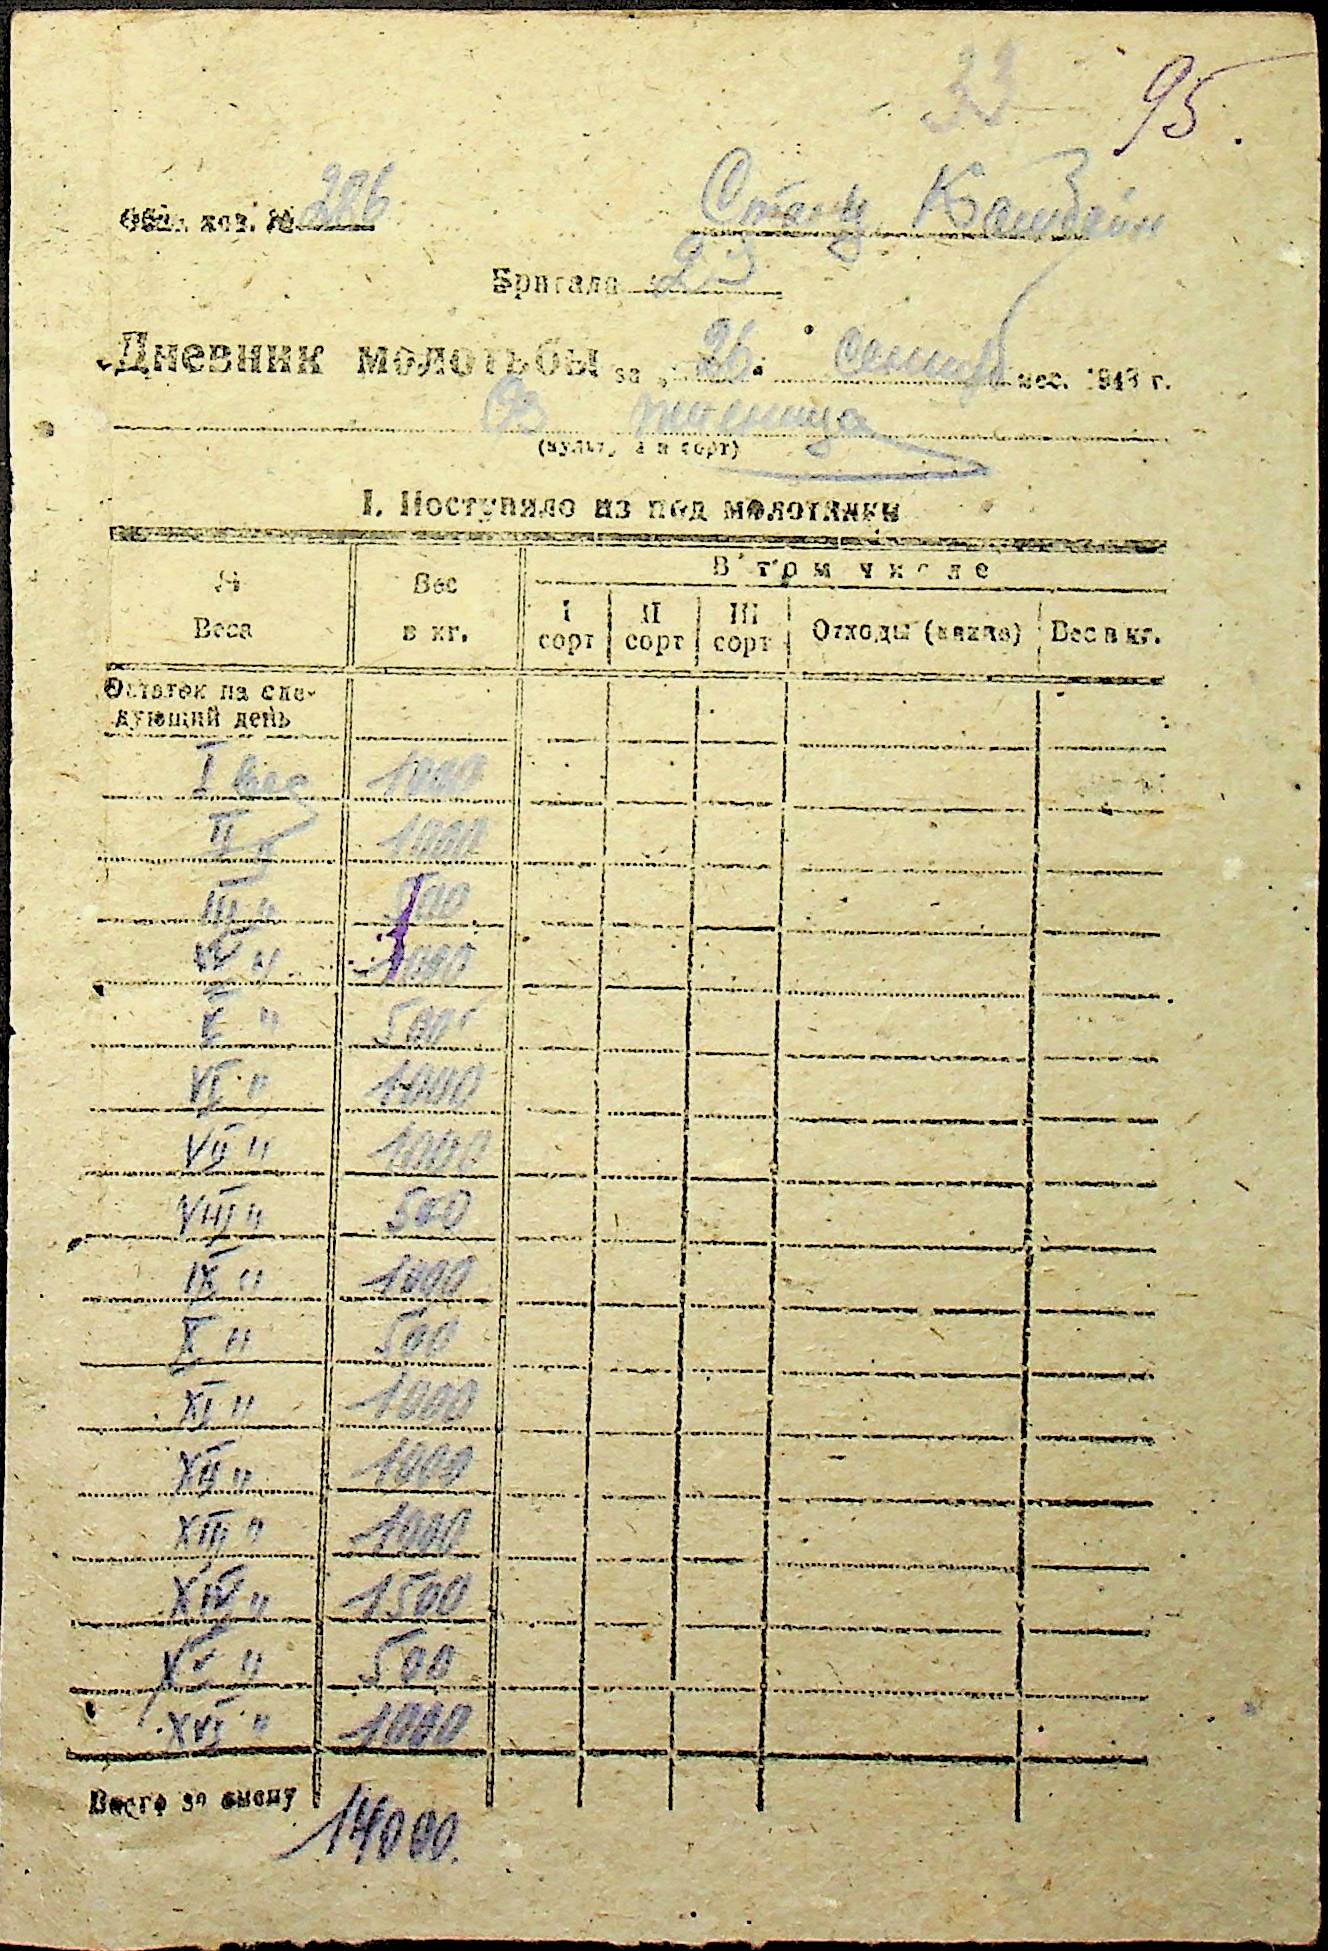 33 95.
Общ. хоз. № 286
Бригада 23
Дневник молотьбы за „26“ мес. 1943 г.
Оз пшеница
(культура и сорт)
I. Поступило из под молотилки
№ Веса Вес в кг. В том числе
I сорт II сорт III сорт Отходы (какие) Вес в кг.
Остаток на сле-
дующий день
I вес 1000
II " 1000
III " 500
IV " 1000
V " 500
VI " 1000
VII " 1000
VIII " 500
IX " 1000
X " 500
XI " 1000
XII " 1000
XIII " 1000
XIV " 1500
XV " 500
XVI " 1000
Всего за смену 14000.